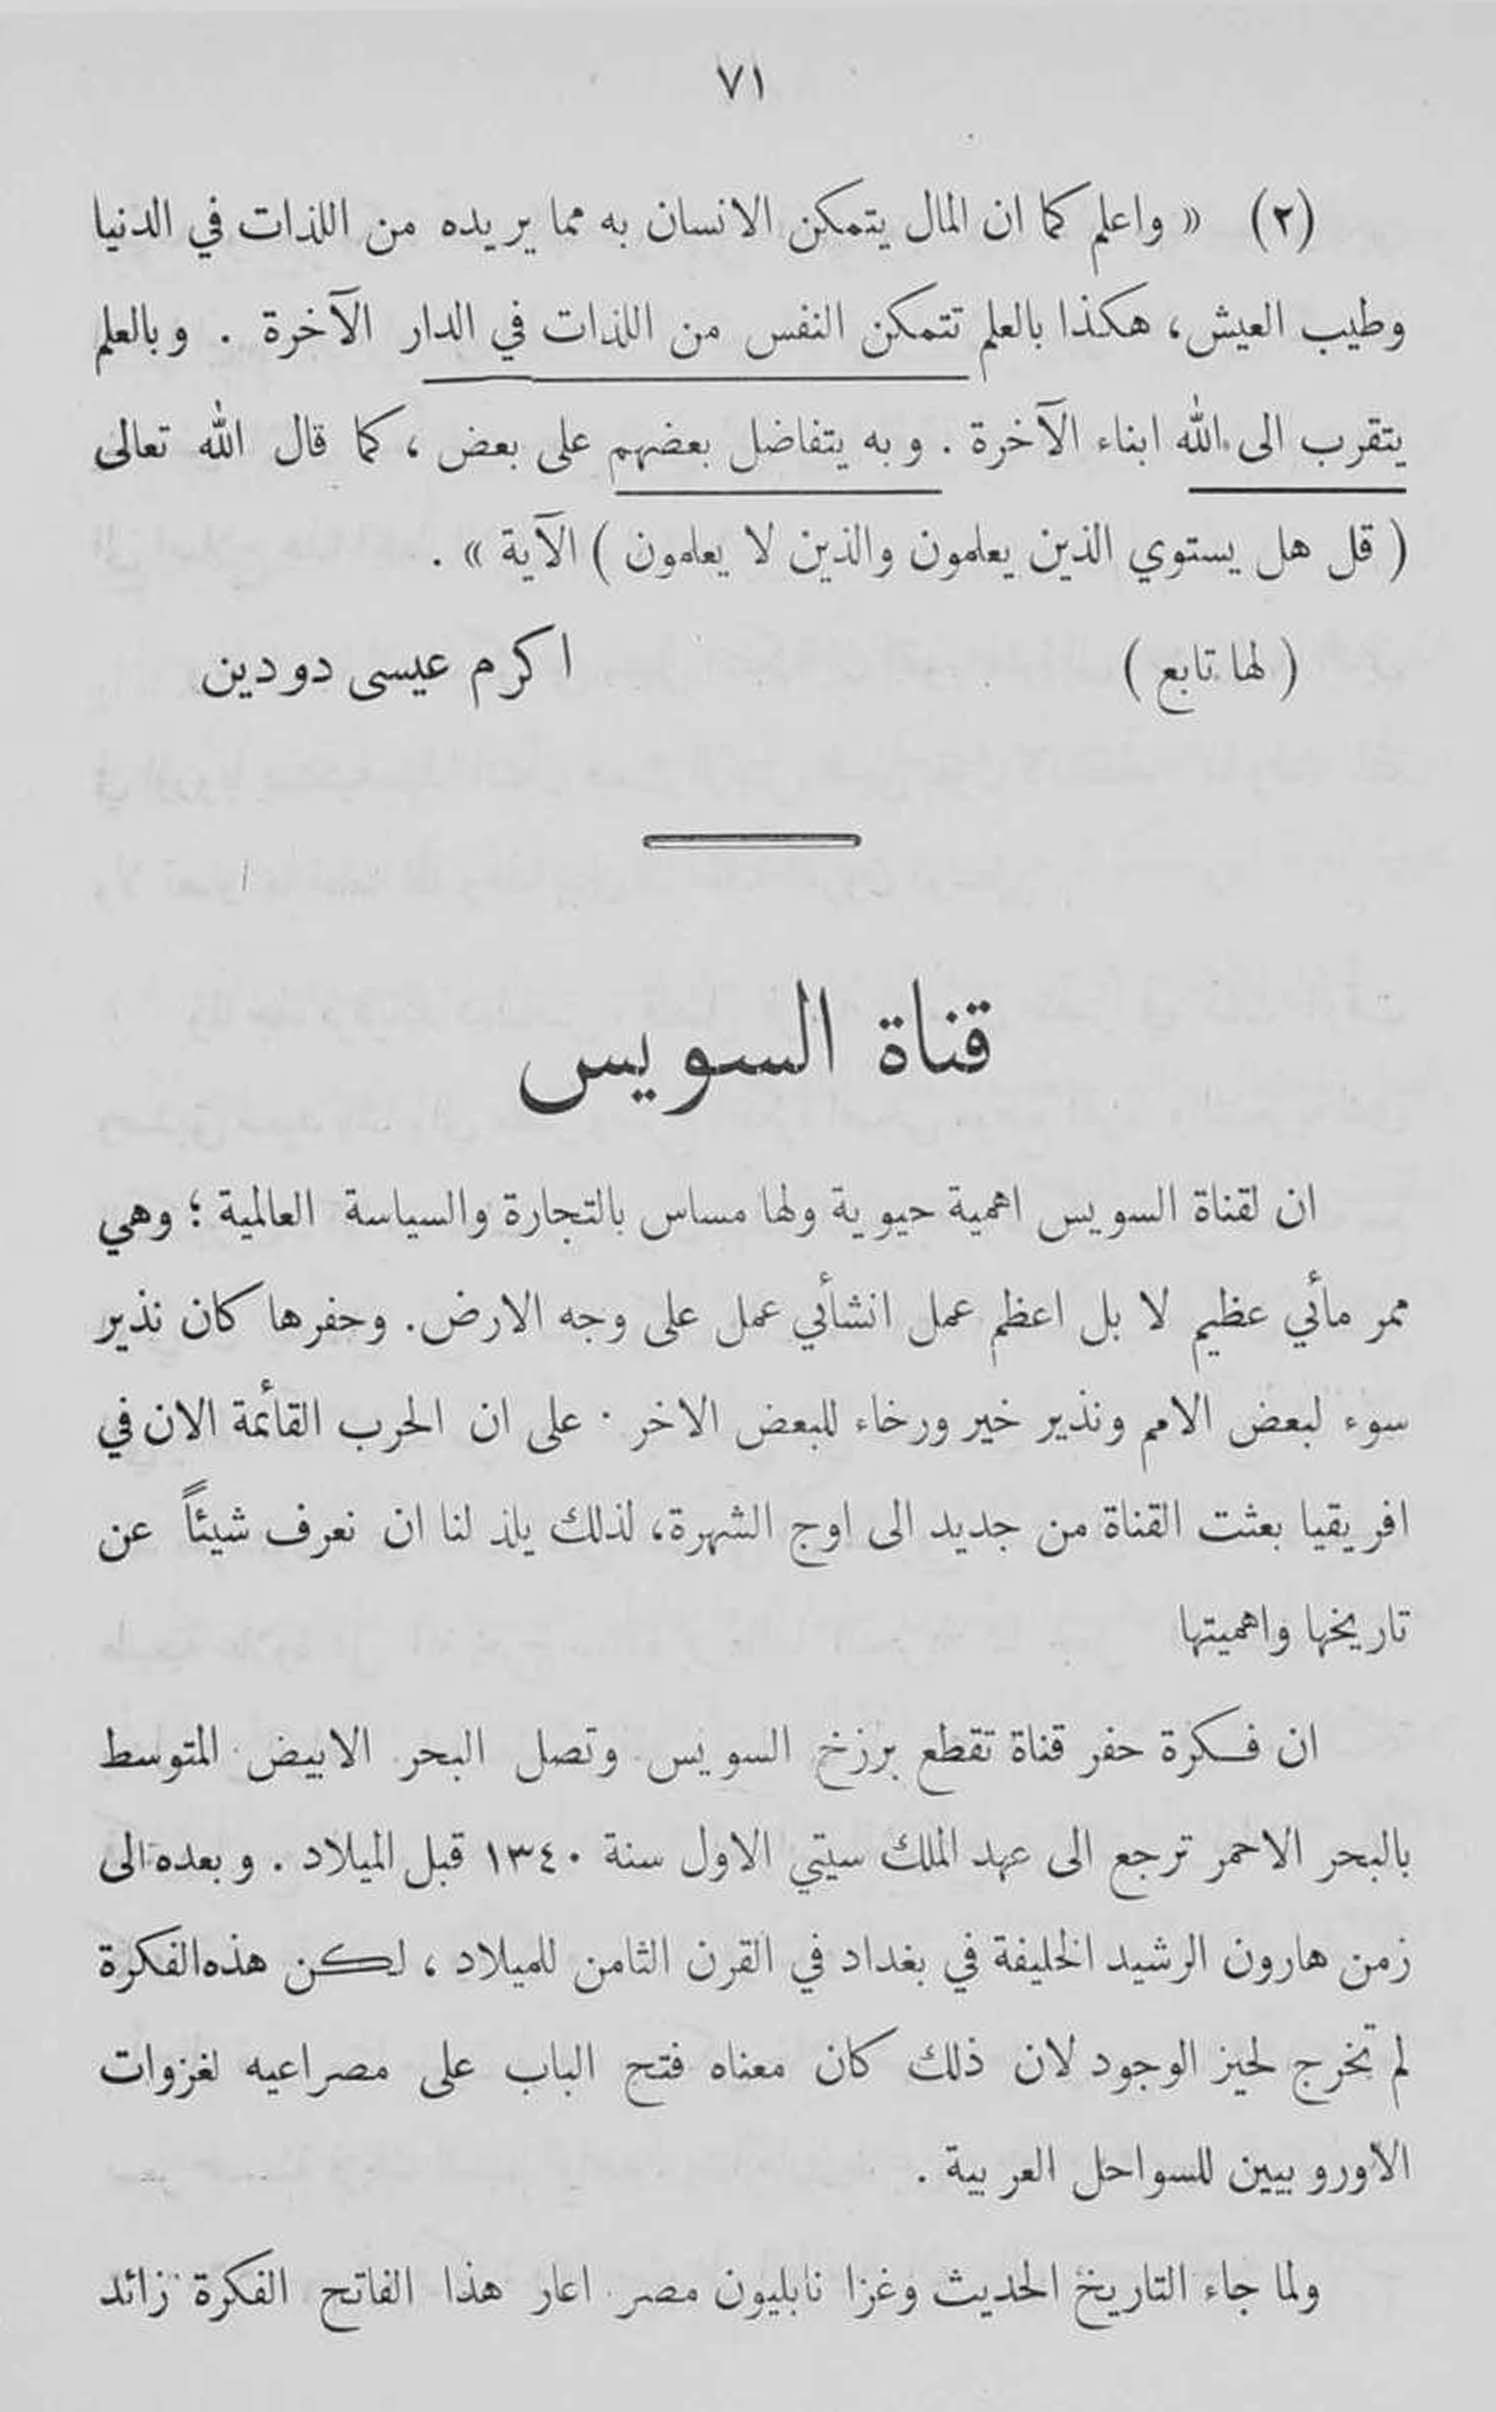 ٧١
(٢) « واعلم كما ان المال يتمكن الانسان به مما يريده من اللذات في الدنيا
وطيب العيش، هكذا بالعلم تتمكن النفس من اللذات في الدار الآخرة . وبالعلم
يتقرب الى الله ابناء الآخرة . وبه يتفاضل بعضهم على بعض ، كما قال الله تعالى
( قل هل يستوي الذين يعلمون والذين لا يعلمون ) الآية » .
( لها تابع ) اكرم عيسى دودين
قناة السويس
ان لقناة السويس اهمية حيوية ولها مساس بالتجارة والسياسة العالمية ؛ وهي
ممر مأئي عظيم لا بل اعظم عمل انشأئي عمل على وجه الارض. وحفرها كان نذير
سوء لبعض الامم ونذير خير ورخاء للبعض الاخر . على ان الحرب القأئمة الان في
افريقيا بعثت القناة من جديد الى اوج الشهرة، لذلك يلذ لنا ان نعرف شيئاً عن
تاريخها واهميتها
ان فكرة حفر قناة تقطع برزخ السويس وتصل البحر الابيض المتوسط
بالبحر الاحمر ترجع الى عهد الملك سيتي الاول سنة ١٣٤٠ قبل الميلاد . وبعده الى
زمن هارون الرشيد الخليفة في بغداد في القرن الثامن للميلاد ، لكن هذه الفكرة
لم تخرج لحيز الوجود لان ذلك كان معناه فتح الباب على مصراعيه لغزوات
الاوروبيين للسواحل العربية .
ولما جاء التاريخ الحديث وغزا نابليون مصر اعار هذا الفاتح الفكرة زائد